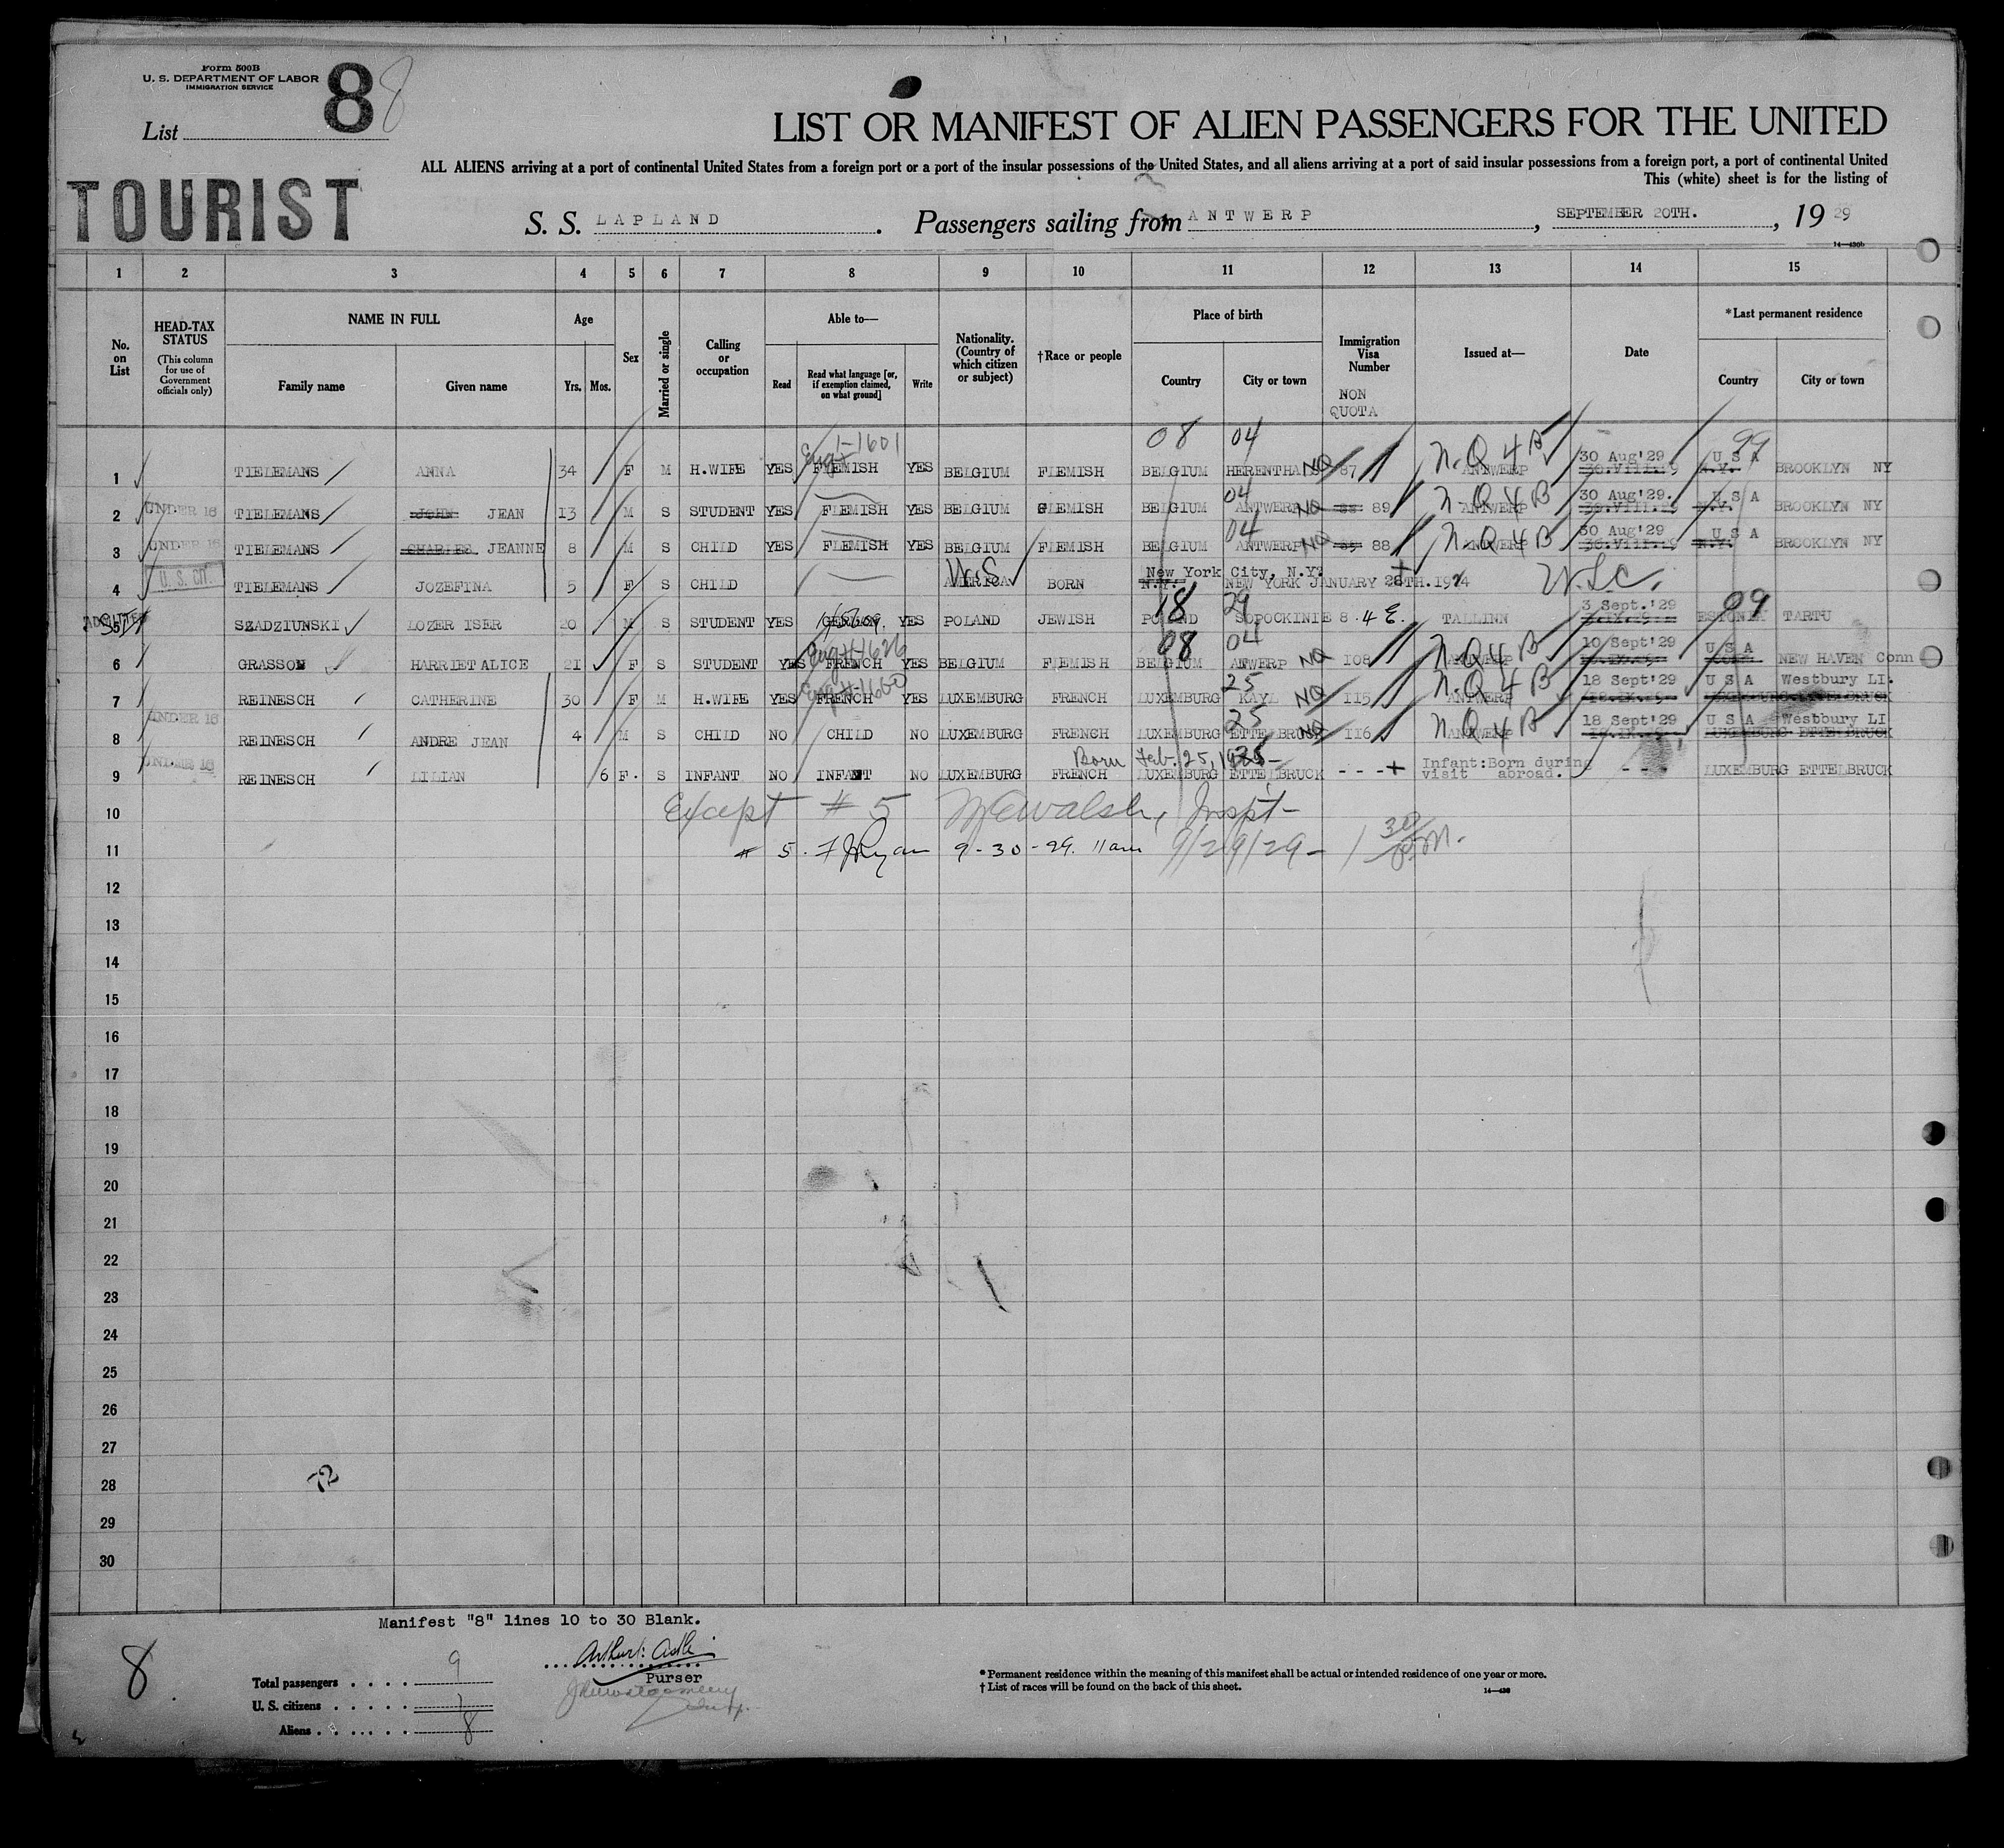 Form 500B
U. S. DEPARTMENT OF LABOR
IMMIGRATION SERVICE
List 8 8
LIST OR MANIFEST OF ALIEN PASSENGERS FOR THE UNITED
ALL ALIENS arriving at a port of continental United States from a foreign port or a port of the insular possessions of the United States, and all aliens arriving at a port of said insular possessions from a foreign port, a port of continental United
This (white) sheet is for the listing of
TOURIST
S. S. LAPLAND. Passengers sailing from ANTWERP, SEPTEMBER 20TH., 1929
14—430b
1 2 3 4 5 6 7 8 9 10 11 12 13 14 15
No. on List
HEAD-TAX STATUS (This column for use of Government officials only)
NAME IN FULL Family name Given name
Age Yrs. Mos.
Sex
Married or single
Calling or occupation
Able to— Read Read what language [or, if exemption claimed, on what ground] Write
Nationality. (Country of which citizen or subject)
†Race or people
Place of birth Country City or town
Immigration Visa Number NON QUOTA
Issued at—
Date
*Last permanent residence Country City or town
08 04 99
1 TIELEMANS ANNA 34 F M H.WIFE YES FLEMISH YES BELGIUM FLEMISH BELGIUM HERENTHALS NQ 87 ANTWERP N.Q 4 B 30 Aug'29 30.VIII.29 U S A N.Y. BROOKLYN NY
2 UNDER 16 TIELEMANS JOHN JEAN 13 M S STUDENT YES FLEMISH YES BELGIUM FLEMISH BELGIUM 04 ANTWERP NQ 88 89 ANTWERP N.Q 4 B 30 Aug'29. 30.VIII.29 U S A N.Y. BROOKLYN NY
3 UNDER 16 TIELEMANS CHARLES JEANNE 8 M S CHILD YES FLEMISH YES BELGIUM FLEMISH BELGIUM 04 ANTWERP NQ 89 88 ANTWERP N.Q 4 B 30 Aug'29 30.VIII.29 U S A N.Y. BROOKLYN NY
4 U. S. CIT. TIELEMANS JOZEFINA 5 F S CHILD AMERICA U.S. BORN New York City, N.Y. N.Y. NEW YORK JANUARY 28TH.1924 U.S.C.
5 ADMITTED SZADZIUNSKI LOZER ISER 20 M S STUDENT YES GERMAN YES POLAND JEWISH 18 POLAND 29 SOPOCKINIE 8 .4 E. TALLINN 3 Sept.'29 3.IX.29 09 ESTONIA TARTU
6 GRASSON HARRIET ALICE 21 F S STUDENT YES FRENCH YES BELGIUM FLEMISH 08 BELGIUM 04 ANTWERP NQ 108 ANTWERP N.Q 4 B 10 Sept'29 U S A NEW HAVEN Conn
7 REINESCH CATHERINE 30 F M H.WIFE YES FRENCH YES LUXEMBURG FRENCH LUXEMBURG 25 KAYL NQ 115 ANTWERP N.Q 4 B 18 Sept'29 18.IX.29 U S A Westbury LI. LUXEMBURG ETTELBRUCK
8 UNDER 16 REINESCH ANDRE JEAN 4 M S CHILD NO CHILD NO LUXEMBURG FRENCH LUXEMBURG 25 ETTELBRUCK NQ 116 ANTWERP N.Q 4 B 18 Sept'29 18.IX.29 U S A Westbury LI LUXEMBURG ETTELBRUCK
Born Feb. 25,
9 UNDER 16 REINESCH LILIAN 6 F. S INFANT NO INFANT NO LUXEMBURG FRENCH LUXEMBURG ETTELBRUCK - - - Infant:Born during visit abroad. - - - LUXEMBURG ETTELBRUCK
10 Except # 5 Walsh, Inspt-
11 # 5. Ryan 9-30-29. 11am 9/29/29 - 1 30 P.M.
12
13
14
15
16
17
18
19
20
21
22
23
24
25
26
27
28 72
29
30
Manifest "8" lines 10 to 30 Blank.
8
Total passengers . . . . 9
U. S. citizens . . . . . 1
Aliens . . . . . . 8
Purser
* Permanent residence within the meaning of this manifest shall be actual or intended residence of one year or more.
† List of races will be found on the back of this sheet.
14—430